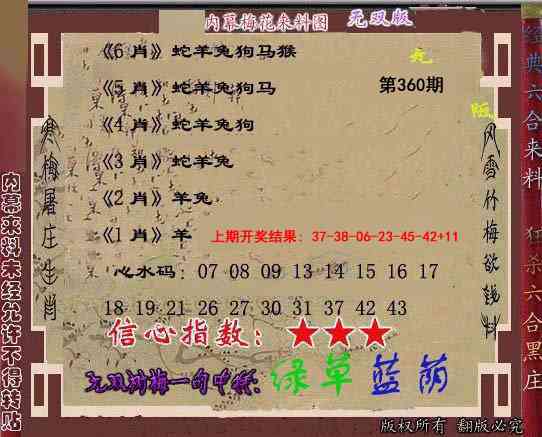 内幕梅花来料图 无双版
《6 肖》蛇羊兔狗马猴
《5 肖》蛇羊兔狗马
第360期
《4 肖》蛇羊兔狗
《3 肖》蛇羊兔
《2 肖》羊兔
《1 肖》羊
上期开奖结果: 37-38-06-23-45-42+11
心水码: 07 08 09 13 14 15 16 17
18 19 21 26 27 30 31 37 42 43
信心指数: ★★★
绿草蓝荫
版权所有 翻版必究
寒梅屠庄生肖
风雪竹梅欲钱料
内幕来料未经允许不得转贴
经典六合来料
狂杀六合黑庄